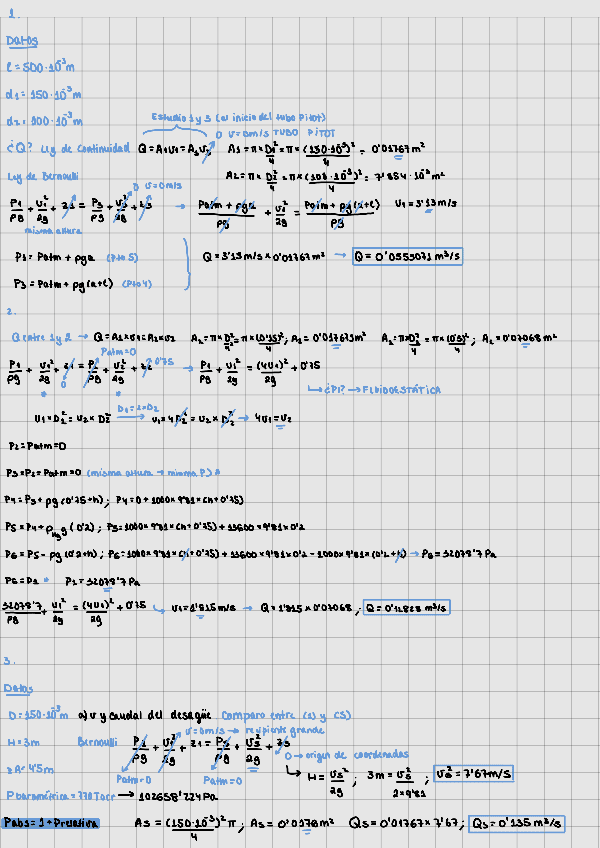 1.
Datos
l = 500·10⁻³m
d1 = 150·10⁻³m
d2 = 100·10⁻³m
Estudio 1 y 3 (al inicio del tubo Pitot)
0 v=0m/s TUBO PITOT
¿Q? Ley de Continuidad Q = A1v1 = A3v3 A1 = π×D1²/4 = π×(150·10⁻³)²/4 = 0'01767m²
A2 = π×D2²/4 = π×(100·10⁻³)²/4 = 7'854·10⁻³m²
Ley de Bernoulli
0 v=0m/s
P1/ρg + v1²/2g + z1 = P3/ρg + v3²/2g + z3 → Patm + ρga/ρg + v1²/2g = Patm + ρg(a+l)/ρg v1 = 3'13m/s
misma altura
P1 = Patm + ρga (Pto 5)
Q = 3'13m/s × 0'01767m² → Q = 0'0553071 m³/s
P3 = Patm + ρg(a+l) (Pto 4)
2.
Q entre 1 y 2 → Q = A1×v1 = A2×v2 A1 = π×D1²/4 = π×(0'15)²/4; A1 = 0'01767m² A2 = π×D2²/4 = π×(0'3)²/4; A2 = 0'07068m²
Patm=0
P1/ρg + v1²/2g + z1 = P2/ρg + v2²/2g + z2 0'75 → P1/ρg + v1²/2g = (4v1)²/2g + 0'75
0
↳ ¿P1? → FLUIDOESTÁTICA
v1×D1² = v2×D2² D1=2×D2 → v1×4D2² = v2×D2² → 4v1 = v2
P2 = Patm = 0
P3 = P2 = Patm = 0 (misma altura → misma P)
P4 = P3 + ρg(0'75+h); P4 = 0 + 1000×9'81×(h+0'75)
P5 = P4 + ρHg g(0'2); P5 = 1000×9'81×(h+0'75) + 13600×9'81×0'2
P6 = P5 - ρg(0'2+h); P6 = 1000×9'81×(h+0'75) + 13600×9'81×0'2 - 1000×9'81×(0'2+h) → P6 = 32078'7 Pa
P6 = P1 P1 = 32078'7 Pa
32078'7/ρg + v1²/2g = (4v1)²/2g + 0'75 ↳ v1 = 1'815m/s → Q = 1'815×0'07068; Q = 0'12828 m³/s
3.
Datos
D = 150·10⁻³m a) v y caudal del desagüe Comparo entre (2) y (5)
v=0m/s → recipiente grande
H = 3m Bernoulli P2/ρg + v2²/2g + z1 = P5/ρg + v5²/2g + z5
0 → origen de coordenadas
zA = 4'5m Patm=0 Patm=0
↳ H = v5²/2g; 3m = v5²/2×9'81; v5² = 7'67m/s
P barométrica = 770 Torr → 102658'224 Pa
Pabs = 1 + Prelativa A5 = (150·10⁻³)²π/4; A5 = 0'0176m² Q5 = 0'01767×7'67; Q5 = 0'135 m³/s